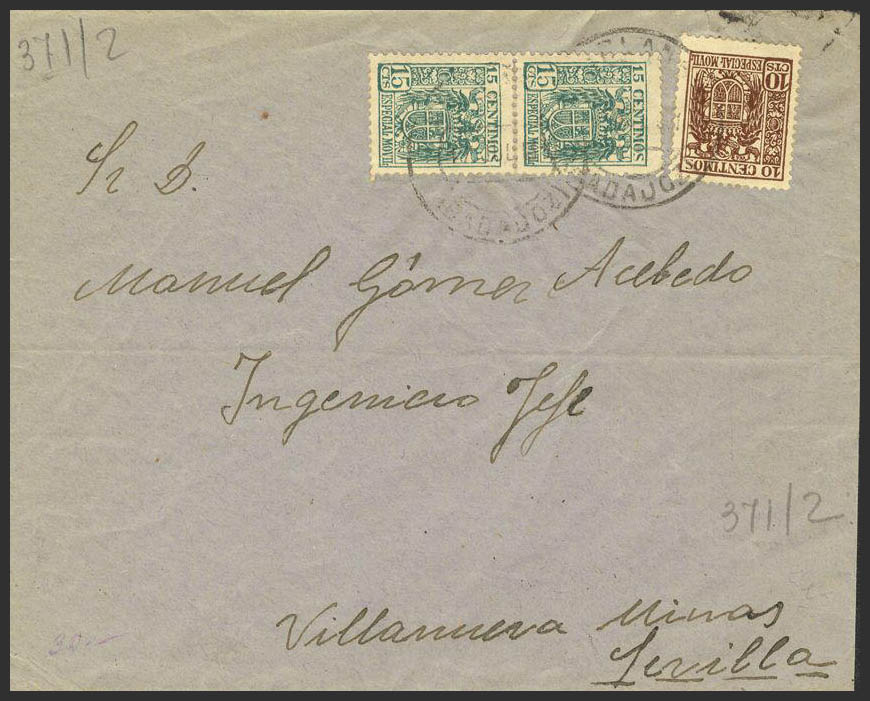 371/2
15 CTS
ESPECIAL MOVIL
15 CENTIMOS
15 CTS
ESPECIAL MOVIL
15 CENTIMOS
10 CTS
ESPECIAL MOVIL
10 CENTIMOS
(BADAJOZ)
BADAJOZ
Sr D.
Manuel Gómez Acebedo
Ingeniero Jefe
371/2
Villanueva Minas
Sevilla
30—